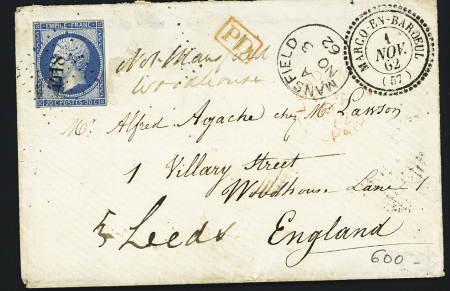 EMPIRE FRANC.
20 C POSTES 20 C
PD
Not Mansfield
Woodhouse
MANSFIELD
A
NO 3
62
MARCQ-EN-BAROEUL
1
NOV.
62
(57)
Mr Alfred Agache chez Mr Lawson
1 Villary Street
Woodhouse Lane
Leeds
England
600